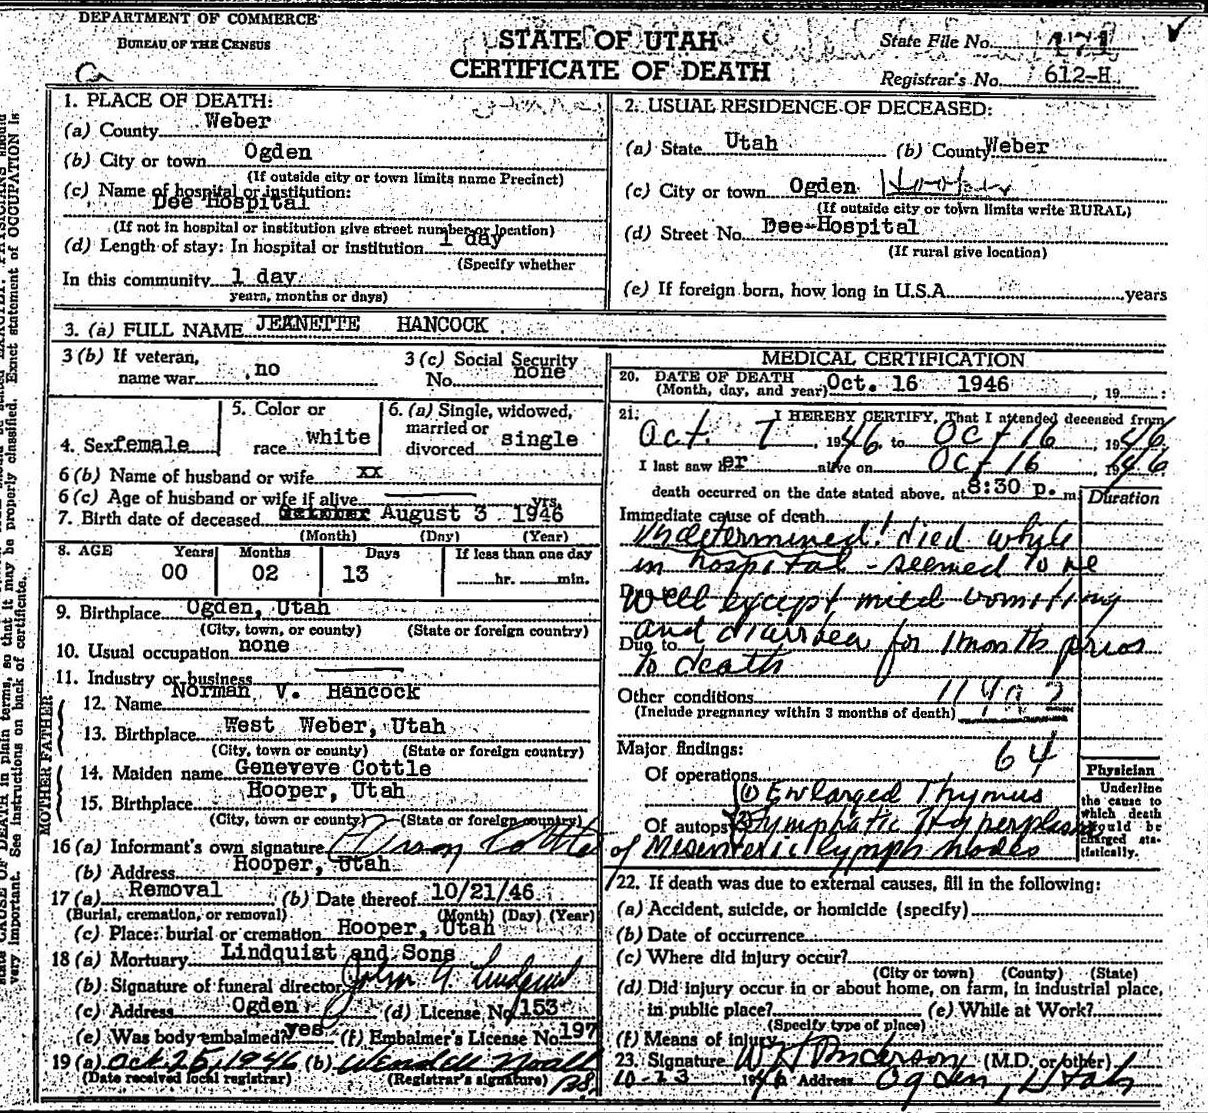 DEPARTMENT OF COMMERCE
BUREAU OF THE CENSUS
STATE OF UTAH
CERTIFICATE OF DEATH
State File No. 171
Registrar's No. 612-H
1. PLACE OF DEATH:
(a) County Weber
(b) City or town Ogden
(If outside city or town limits name Precinct)
(c) Name of hospital or institution:
Dee Hospital
(If not in hospital or institution give street number or location)
(d) Length of stay: In hospital or institution 1 day
(Specify whether
In this community 1 day
years, months or days)
2. USUAL RESIDENCE OF DECEASED:
(a) State Utah (b) County Weber
(c) City or town Ogden Hooper
(If outside city or town limits write RURAL)
(d) Street No. Dee Hospital
(If rural give location)
(e) If foreign born, how long in U.S.A. years
3. (a) FULL NAME JEANETTE HANCOCK
3 (b) If veteran, name war no
3 (c) Social Security No. none
4. Sex female
5. Color or race white
6. (a) Single, widowed, married or divorced single
6 (b) Name of husband or wife xx
6 (c) Age of husband or wife if alive yrs.
7. Birth date of deceased October August 3 1946
(Month) (Day) (Year)
8. AGE Years Months Days If less than one day
00 02 13 hr. min.
9. Birthplace Ogden, Utah
(City, town, or county) (State or foreign country)
10. Usual occupation none
11. Industry or business
FATHER
12. Name Norman V. Hancock
13. Birthplace West Weber, Utah
(City, town or county) (State or foreign country)
MOTHER
14. Maiden name Geneveve Cottle
15. Birthplace Hooper, Utah
(City, town or county) (State or foreign country)
16 (a) Informant's own signature Cottle
(b) Address Hooper, Utah
17 (a) Removal (b) Date thereof 10/21/46
(Burial, cremation, or removal) (Month) (Day) (Year)
(c) Place: burial or cremation Hooper, Utah
18 (a) Mortuary Lindquist and Sons
(b) Signature of funeral director John A. Lindquist
(c) Address Ogden (d) License No. 153
(e) Was body embalmed? yes (f) Embalmer's License No. 197
19 (a) Oct 25, 1946 (b) Wendell Noall
(Date received local registrar) (Registrar's signature)
MEDICAL CERTIFICATION
20. DATE OF DEATH
(Month, day, and year) Oct. 16 1946, 19
21. I HEREBY CERTIFY, That I attended deceased from
Oct. 7, 1946 to Oct 16 1946
I last saw her alive on Oct 16 1946
death occurred on the date stated above, at 8:30 p. m.
Duration
Immediate cause of death
Undetermined! died while
in hospital - seemed to be
Due to well except mild vomiting
Due to and diarrhea for 1 month prior
to death
Other conditions
(Include pregnancy within 3 months of death)
Major findings: 64
Of operations
(1) Enlarged Thymus
Of autopsy (2) Lymphatic Hyperplasia
of Mesenteric lymph nodes
Physician
Underline the cause to which death should be charged statistically.
22. If death was due to external causes, fill in the following:
(a) Accident, suicide, or homicide (specify)
(b) Date of occurrence
(c) Where did injury occur?
(City or town) (County) (State)
(d) Did injury occur in or about home, on farm, in industrial place,
in public place? (e) While at Work?
(Specify type of place)
(f) Means of injury
23. Signature W H Anderson (M.D. or other)
10-23 1946 Address Ogden, Utah
state CAUSE OF DEATH in plain terms, so that it may be properly classified. Exact statement of OCCUPATION is
very important. See instructions on back of certificate.